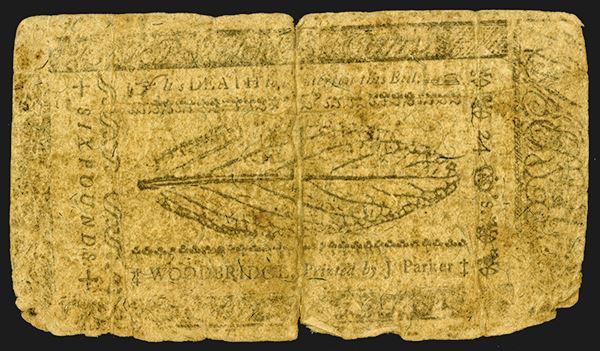 'Tis DEATH to counterfeit this Bill.
‡ SIX POUNDS ‡
24
‡ WOODBRIDGE, Printed by J. Parker ‡